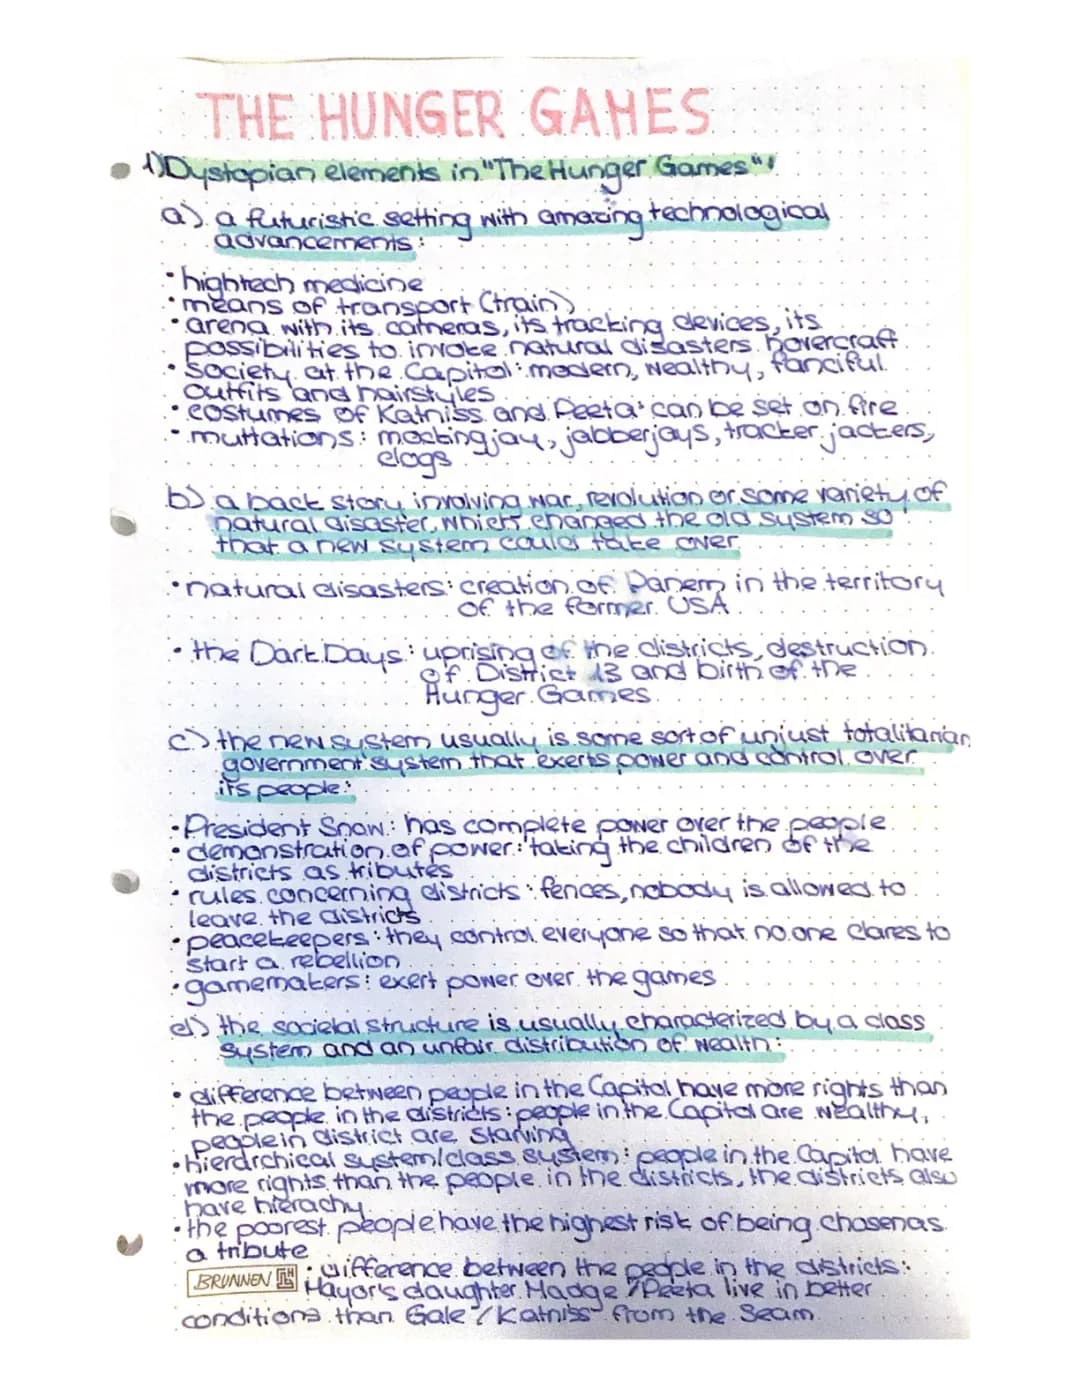 THE HUNGER GAMES
1) Dystopian elements in "The Hunger Games"!
a) a futuristic setting with amazing technological
advancements:
• hightech medicine
• means of transport (train)
• arena with its cameras, its tracking devices, its
possibilities to invoke natural disasters hovercraft
• Society at the Capitol: modern, wealthy, fanciful
outfits and hairstyles
• costumes of Katniss and Peeta: can be set on fire
• muttations: mockingjay, jabberjays, tracker jackers,
dogs
b) a back story involving war, revolution or some variety of
natural disaster, which changed the old system so
that a new system could take over
• natural disasters: creation of Panem in the territory
of the former USA
• the Dark Days: uprising of the districts, destruction
of District 13 and birth of the
Hunger Games
c) the new system usually is some sort of unjust totalitarian
government system that exerts power and control over
its people:
• President Snow: has complete power over the people
• demonstration of power: taking the children of the
districts as tributes
• rules concerning districts: fences, nobody is allowed to
leave the districts
• peacekeepers: they control everyone so that no one dares to
start a rebellion
• gamemakers: exert power over the games
d) the societal structure is usually characterized by a class
system and an unfair distribution of wealth:
• difference between people in the Capitol have more rights than
the people in the districts: people in the Capitol are wealthy,
people in district are starving
• hierarchical system/class system: people in the Capitol have
more rights than the people in the districts, the districts also
have hierachy
• the poorest people have the highest risk of being chosen as
a tribute
BRUNNEN • difference between the people in the districts:
Mayor's daughter Madge / Peeta live in better
conditions than Gale / Katniss from the Seam